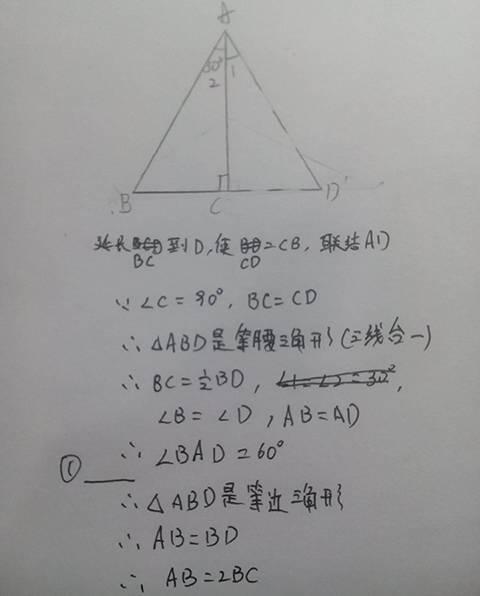 A
30°
1
2
B
C
D
延长BC到D,使CD=CB,联结AD
∵ ∠C = 90°, BC=CD
∴ △ABD是等腰三角形(三线合一)
∴ BC=½BD, ∠1=∠2=30°,
∠B = ∠D , AB=AD
① ∴ ∠BAD =60°
∴ △ABD是等边三角形
∴ AB=BD
∴ AB=2BC